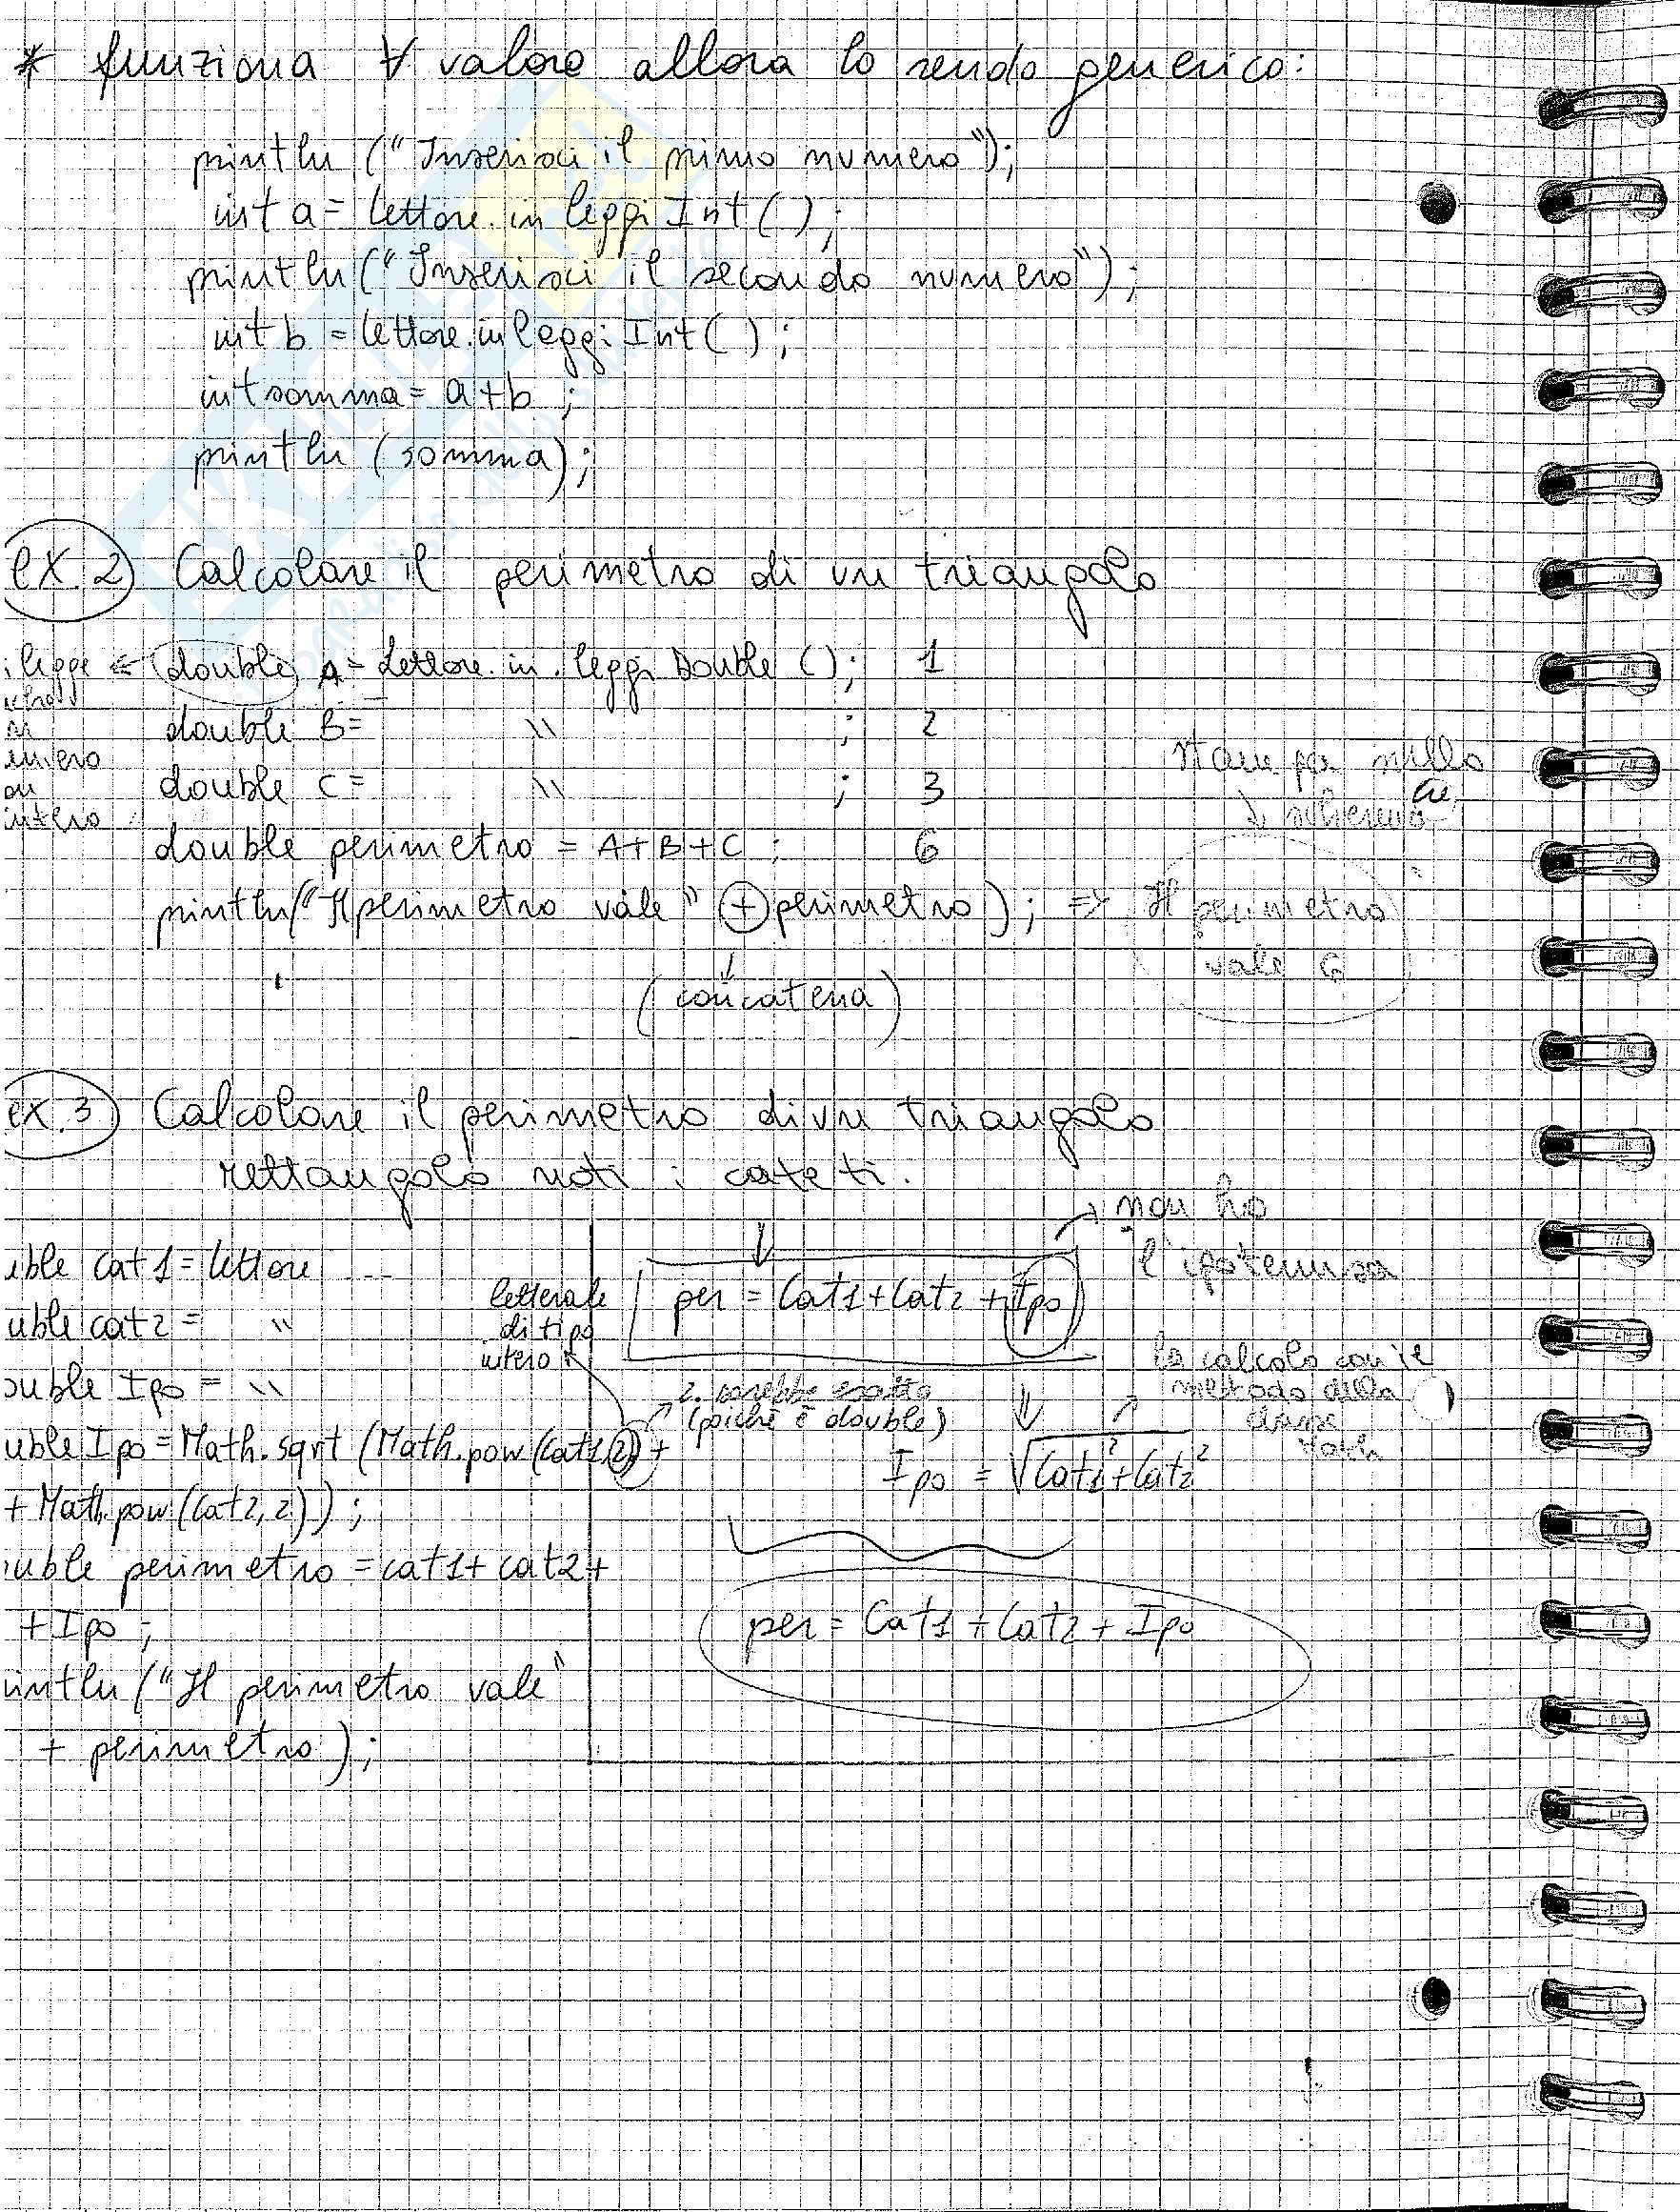 * funziona ∀ valore allora lo rendo generico:
println ("Inserisci il primo numero");
int a = lettore.in leggi Int ( );
println ("Inserisci il secondo numero");
int b = lettore.in leggi Int ( );
int somma = a+b ;
println (somma);
ex. 2 Calcolare il perimetro di un triangolo
legge ← double A = Lettore.in.leggi Double (); 1
double B = " ; 2
double C = " ; 3
intero
double perimetro = A+B+C ; 6
println("Il perimetro vale" + perimetro ); => Il perimetro
vale 6
(concatena)
ex. 3 Calcolare il perimetro di un triangolo
rettangolo noti i cateti.
uble cat1 = lettore ....
uble cat2 = "
ouble Ipo = "
uble Ipo = Math.sqrt (Math.pow(Cat1,2) +
+ Math.pow(Cat2,2)) ;
uble perimetro = cat1 + cat2 +
+ Ipo ;
intln ("Il perimetro vale"
+ perimetro );
letterale
di tipo
intero
2. sarebbe esatto
(poiché è double)
per = Cat1 + Cat2 + Ipo
non ho
l'ipotenusa
lo calcolo con il
metodo della
classe
Math
Ipo = √Cat1² + Cat2²
per = Cat1 + Cat2 + Ipo